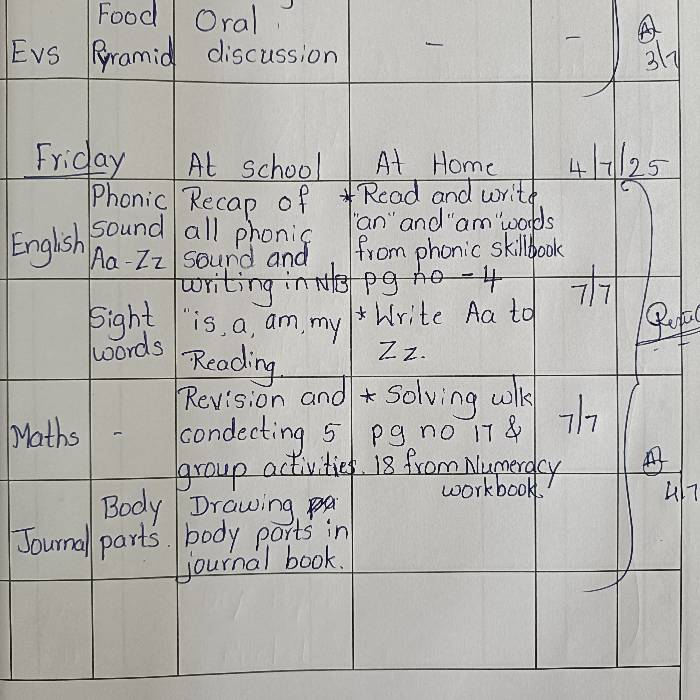 Food Oral
Evs Pyramid discussion - - A
3/7
Friday At school At Home 4/7/25
Phonic Recap of * Read and write
sound all phonic "an" and "am" words
English Aa-Zz sound and from phonic skillbook
writing in N/B pg no - 4 7/7
Sight "is, a, am, my * Write Aa to
words Reading. Zz.
Revision and * Solving w/k
Maths - condecting 5 pg no 17 & 7/7
group activities. 18 from Numeracy A
workbook. 4/7
Body Drawing
Journal parts. body parts in
journal book.